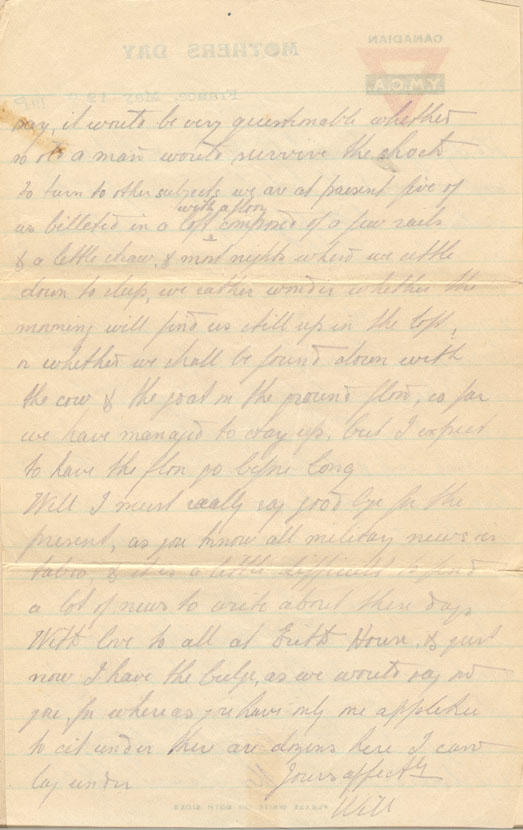 say, it would be very questionable whether
so old a man would survive the shock
To turn to other subjects we are at present five of
with a floor
us billeted in a loft composed of a few rails
& a little straw, & most nights when we settle
down to sleep, we rather wonder whether the
morning will find us still up in the loft,
or whether we shall be found down with
the cow & the goat on the ground floor, so far
we have managed to stay up, but I expect
to have the floor go before long
Well I must really say good bye for the
present, as you know all military news is
taboo, & it is a little difficult to find
a lot of news to write about these days
With love to all at Erith House, & just
now I have the bulge, as we would say on
you, for whereas you have only one appletree
to sit under there are dozens here I can
lay under
Yours affectly
Will
CANADIAN
Y.M.C.A.
MOTHERS DAY
France, May 19
PLEASE WRITE ON BOTH SIDES